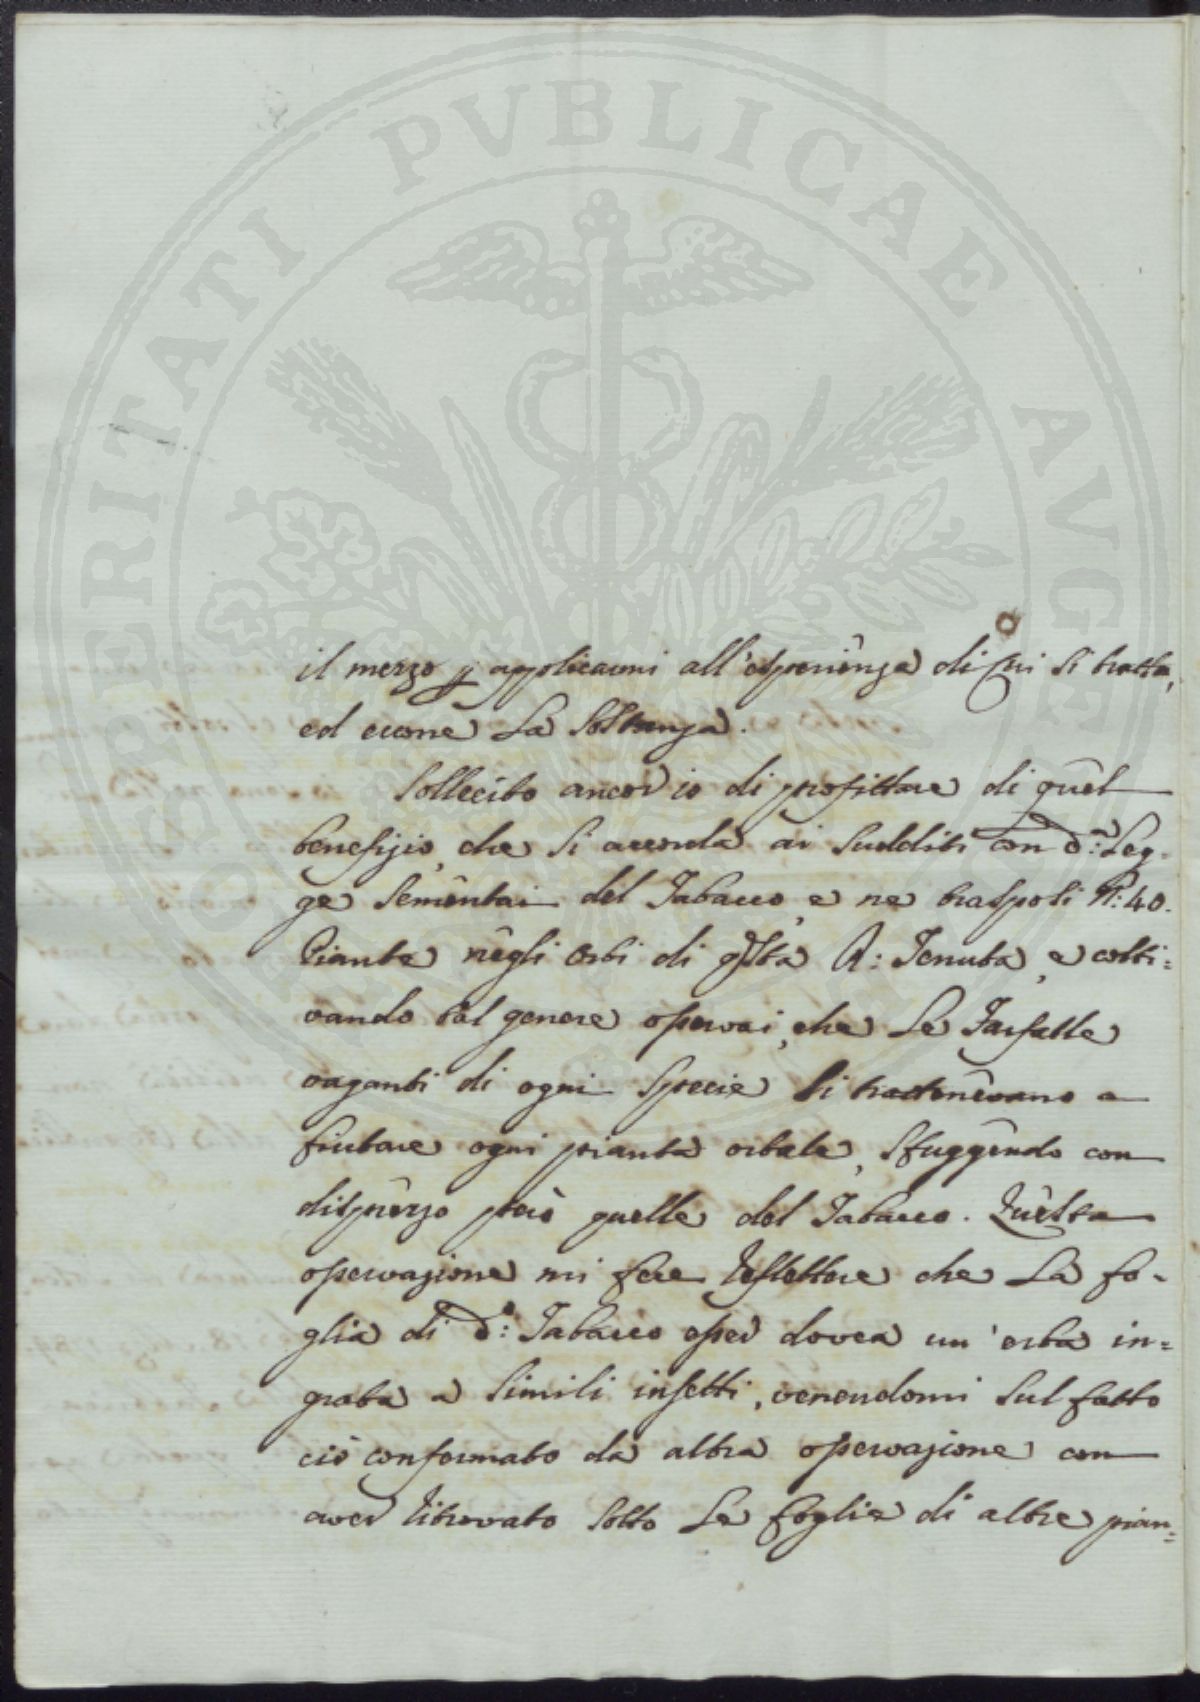 PROSPERITATI PVBLICAE AVGE
il mezzo p applicarmi all'esperiênza di Cui si tratta,
ed eccone La Sostanza.
Sollecito ancor io di profittare di quêl
benefizio, che Si accorda ai Sudditi con d.ª Leg-
ge Semêntai del Tabacco, e ne traspoli N: 40.
Piante nêgli Orti di qsta R: Tenuta, e colti=
vando tal genere osservai, che Le Farfalle
vaganti di ogni Specie Si trattenêvano a
fiutare ogni pianta ortale, Sfuggêndo con
disprêzzo però quelle del Tabacco. Quêsta
osservazione mi fece riflettere che La fo-
glia di d.º Tabacco esser dovea un'erba in=
grata a Simili insetti, venendomi Sul fatto
ciò confermato da altra osservazione con
aver ritrovato Sotto Le foglie di altre pian=